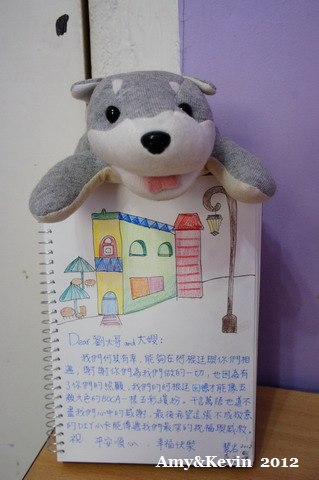 Dear 劉大哥 and 大嫂:
我們何其有幸,能夠在阿根廷跟你們相
遇,謝謝你們為我們做的一切,也因為有
了你們的照顧,我們的阿根廷回憶才能像五
顏六色的BOCA一樣五彩繽紛。千言萬語也道不
盡我們心中的感謝,最後希望這張不成敬意
的DIY小卡能傳達我們最深的祝福與感激.
祝 平安順心、幸福快樂
Amy&Kevin 2012